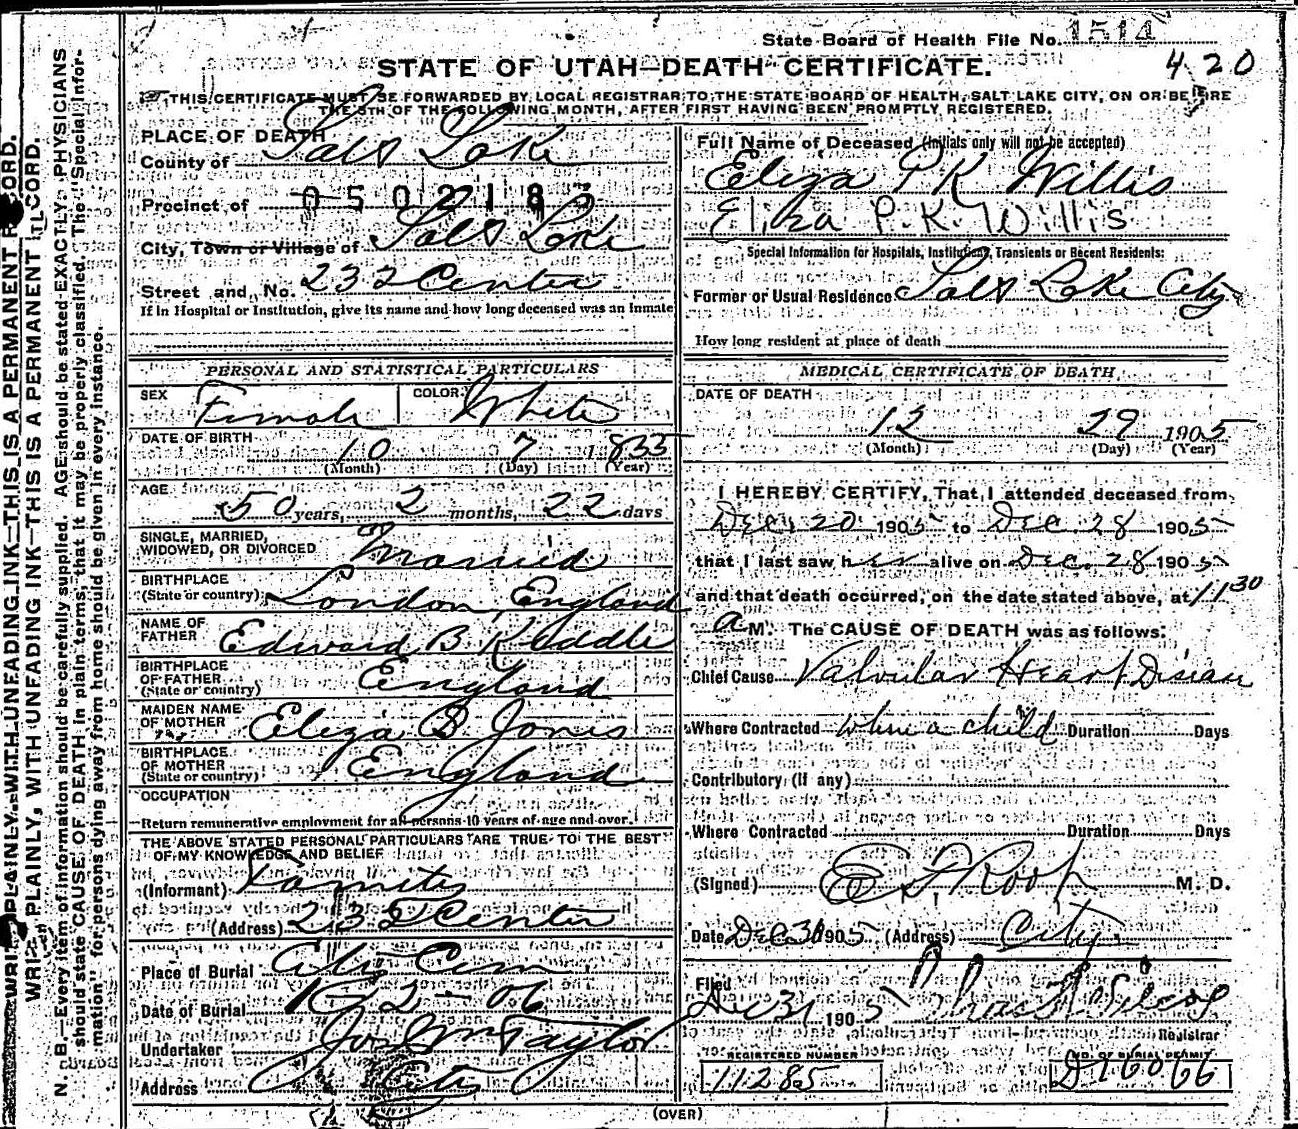 State Board of Health File No. 1514
420
STATE OF UTAH—DEATH CERTIFICATE.
THIS CERTIFICATE MUST BE FORWARDED BY LOCAL REGISTRAR TO THE STATE BOARD OF HEALTH, SALT LAKE CITY, ON OR BEFORE
THE 5TH OF THE FOLLOWING MONTH, AFTER FIRST HAVING BEEN PROMPTLY REGISTERED.
WRITE PLAINLY WITH UNFADING INK—THIS IS A PERMANENT RECORD.
WRITE PLAINLY, WITH UNFADING INK—THIS IS A PERMANENT RECORD.
N. B.—Every item of information should be carefully supplied. AGE should be stated EXACTLY. PHYSICIANS
should state CAUSE OF DEATH in plain terms, that it may be properly classified. The "Special Infor-
mation" for persons dying away from home should be given in every instance.
PLACE OF DEATH
County of Salt Lake
Precinct of
0502183
City, Town or Village of Salt Lake
Street and No. 232 Center
If in Hospital or Institution, give its name and how long deceased was an inmate
PERSONAL AND STATISTICAL PARTICULARS
SEX Female COLOR White
DATE OF BIRTH
10 7 1855
(Month) (Day) (Year)
AGE
50 years, 2 months, 22 days
SINGLE, MARRIED,
WIDOWED, OR DIVORCED Married
BIRTHPLACE
(State or country) London, England
NAME OF
FATHER Edward B. Kiddle
BIRTHPLACE
OF FATHER
(State or country) England
MAIDEN NAME
OF MOTHER Eliza B Jones
BIRTHPLACE
OF MOTHER
(State or country) England
OCCUPATION
Return remunerative employment for all persons 10 years of age and over.
THE ABOVE STATED PERSONAL PARTICULARS ARE TRUE TO THE BEST
OF MY KNOWLEDGE AND BELIEF
(Informant)
(Address) 232 Center
Place of Burial City Cem
Date of Burial 1-2-06
Undertaker Jos Wm Taylor
Address City
Full Name of Deceased (Initials only will not be accepted)
Eliza P K Willis
Eliza P. K. Willis
Special Information for Hospitals, Institutions, Transients or Recent Residents:
Former or Usual Residence Salt Lake City
How long resident at place of death
MEDICAL CERTIFICATE OF DEATH
DATE OF DEATH
12 29 1905
(Month) (Day) (Year)
I HEREBY CERTIFY, That I attended deceased from
Dec. 20 1905 to Dec. 28 1905
that I last saw her alive on Dec. 28 1905
and that death occurred, on the date stated above, at 11 30
a M. The CAUSE OF DEATH was as follows:
Chief Cause Valvular Heart Disease
Where Contracted when a child Duration Days
Contributory (If any)
Where Contracted Duration Days
(Signed) M. D.
Date Dec 30 1905 (Address) City
Filed
Dec 31 1905
Registrar
REGISTERED NUMBER
11285
NO. OF BURIAL PERMIT
D16066
(OVER)